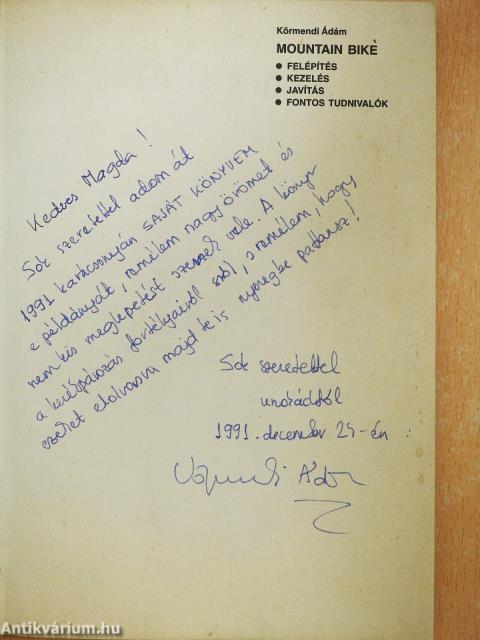 Körmendi Ádám
MOUNTAIN BIKE
● FELÉPÍTÉS
● KEZELÉS
● JAVÍTÁS
● FONTOS TUDNIVALÓK
Kedves Magda!
Sok szeretettel adom át
1991 karácsonyán SAJÁT KÖNYVEM
e példányát, remélem nagy örömet és
nem kis meglepetést szerzek vele. A könyv
a kerékpározás fortélyairól szól, s remélem, hogy
ezeket elolvasva majd te is nyeregbe pattansz!
Sok szeretettel
unokádtól
1991. december 24-én:
Körmendi Ádám
Antikvárium.hu